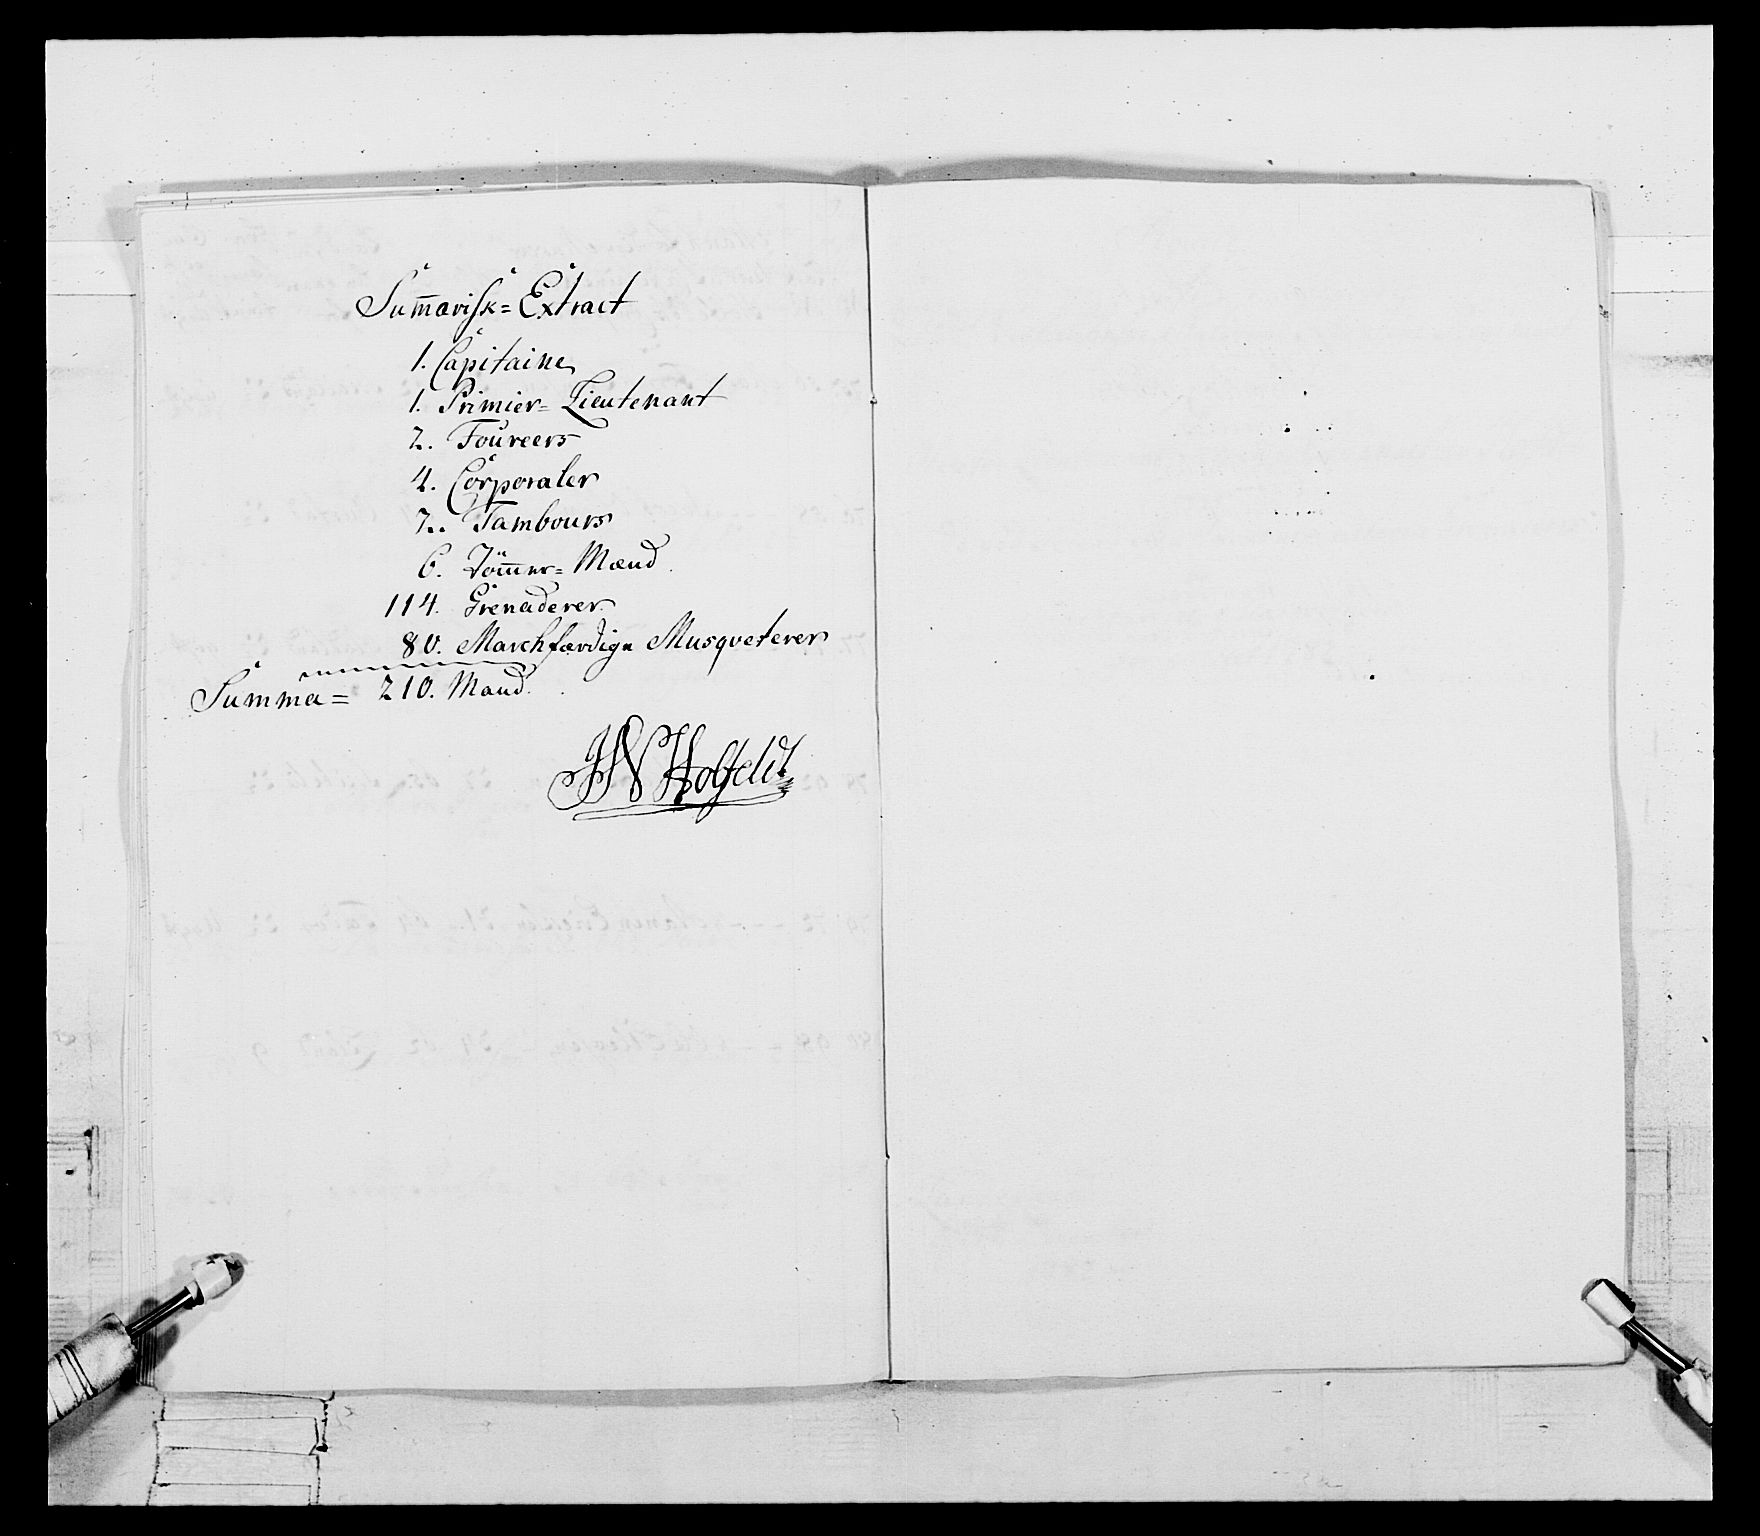 Sum̅arisk= Extract
1. Capitaine
1. Primier= Lieutenant
2. Foureers
4. Corporaler
2. Tambours
6. Töm̅er= Mænd
114. Grenaderer
80. Marchfærdige Musqveterer
Summa= 210. Mand.
Holfeldt